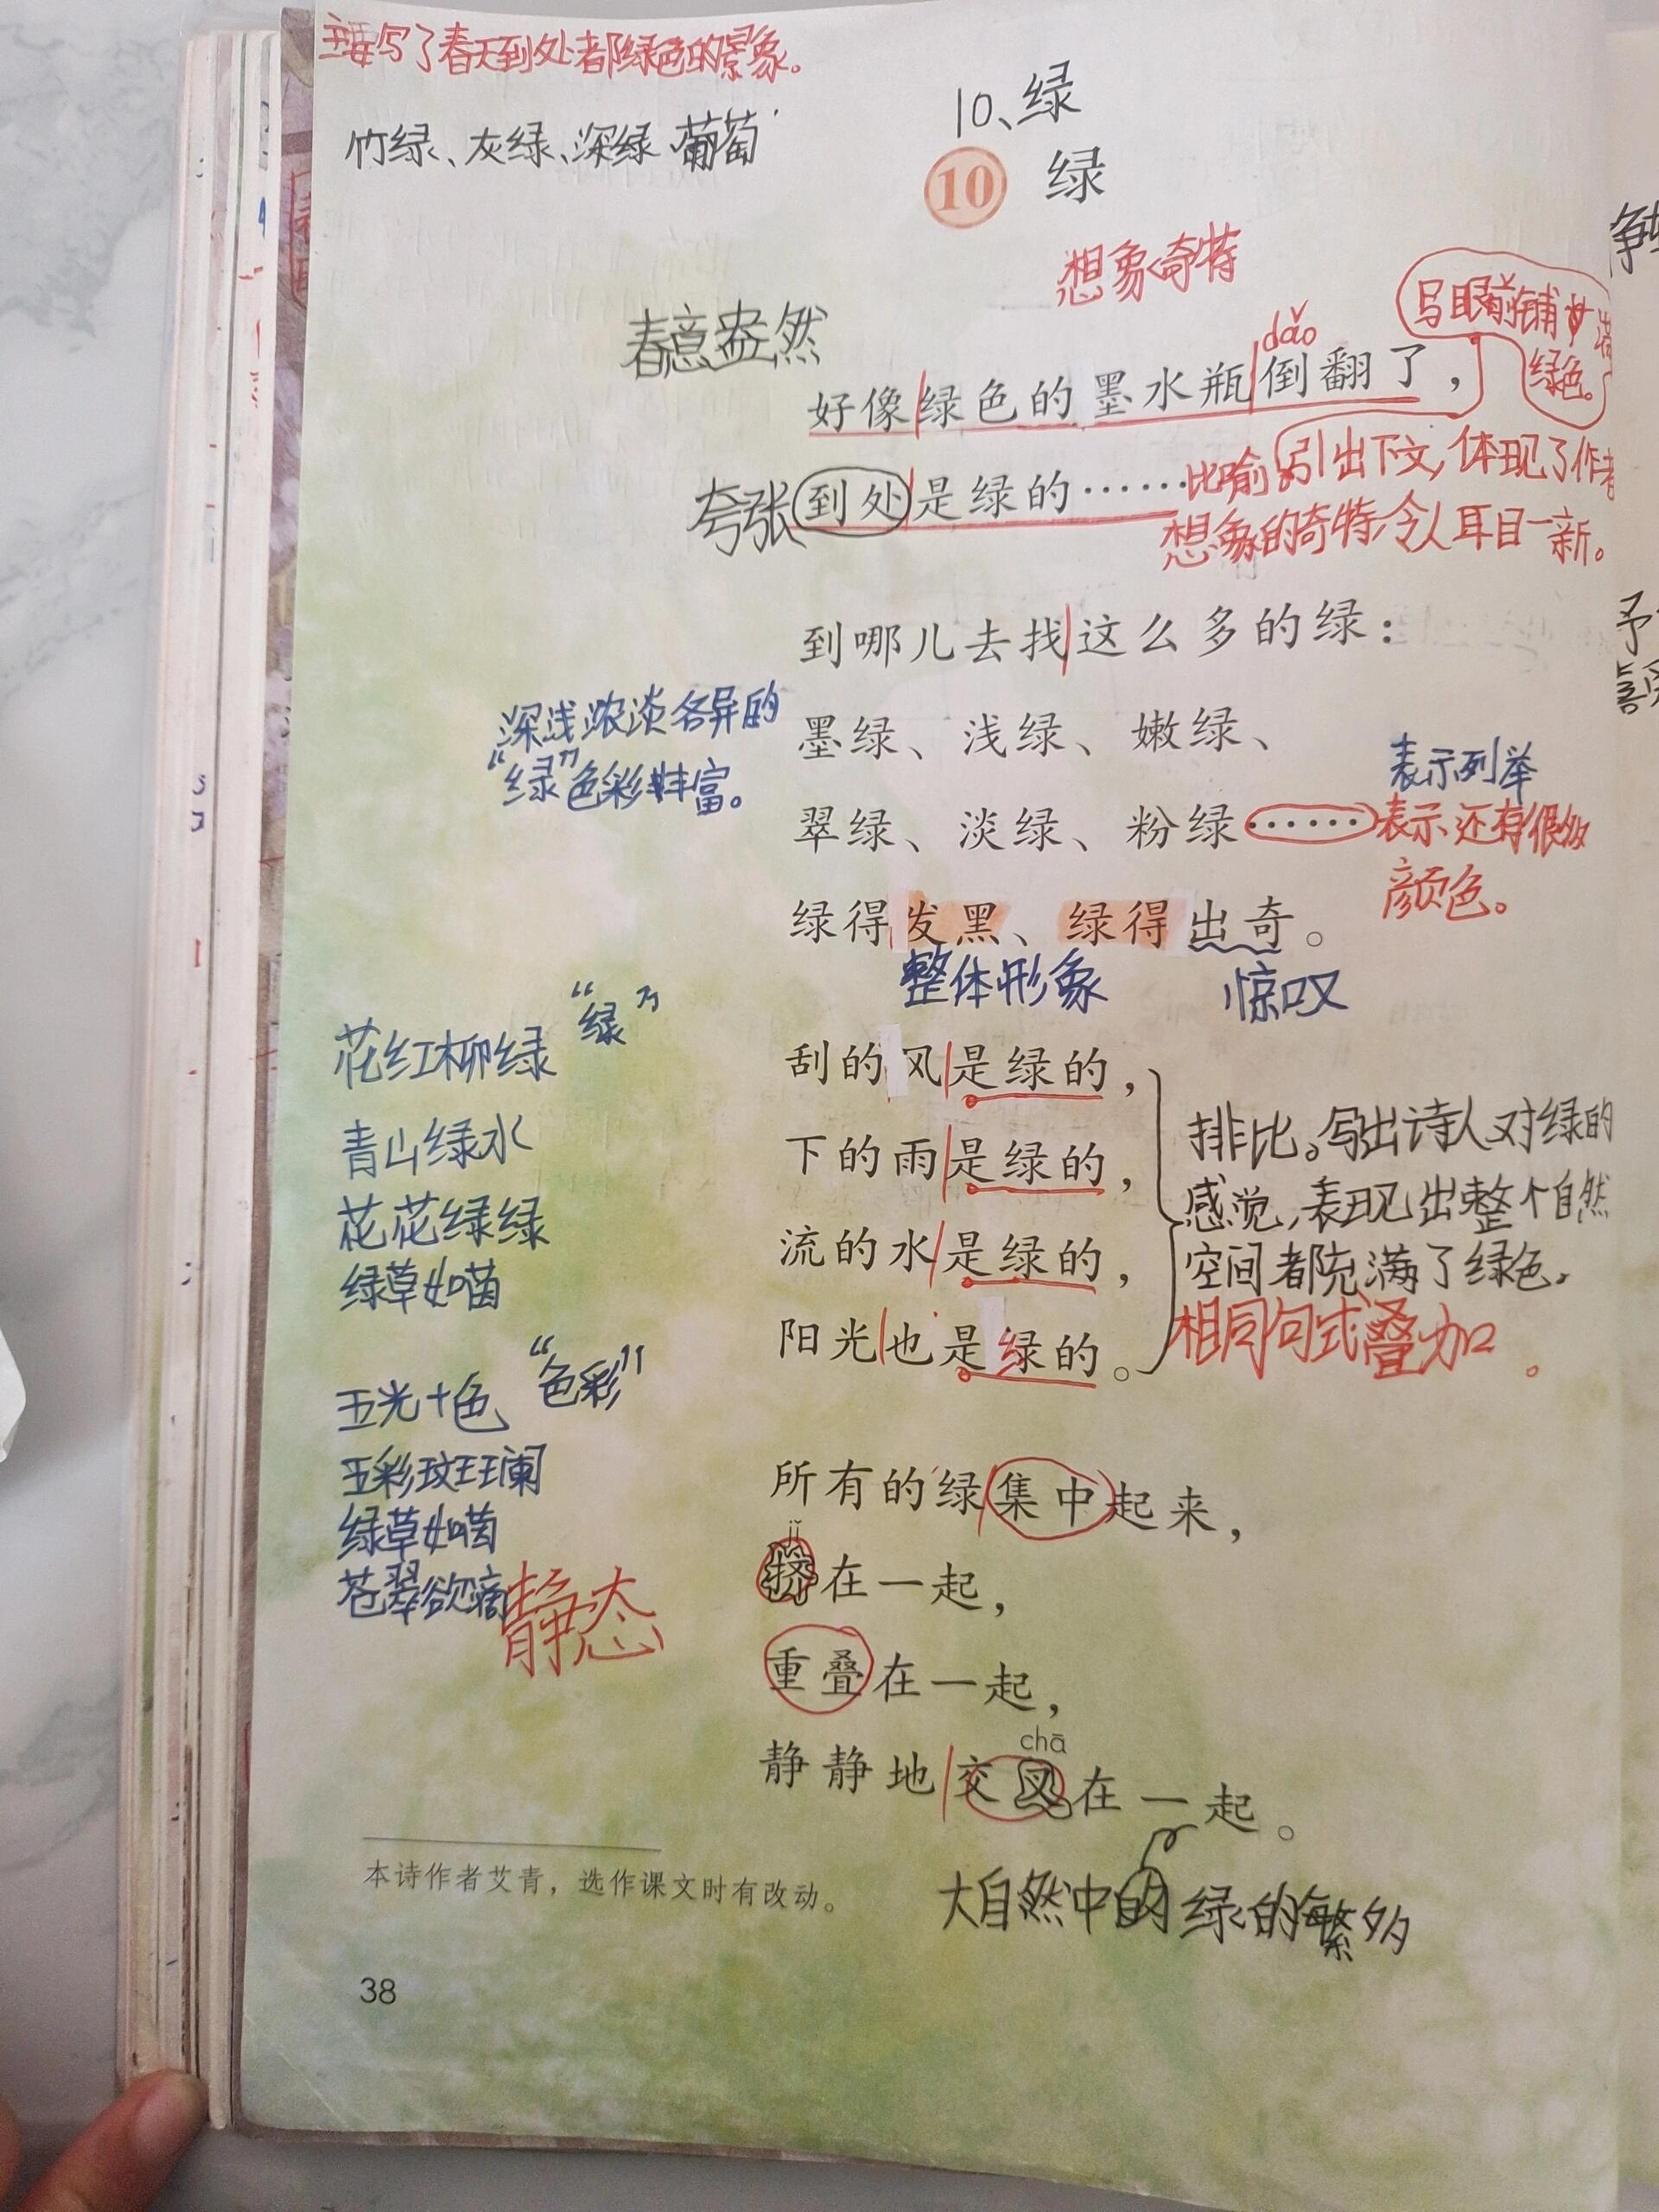 主要写了春天到处都绿色的景象。
竹绿、灰绿、深绿、葡萄
10、绿
10 绿
想象奇特
春意盎然
写眼前铺满
绿色。
dǎo
好像绿色的墨水瓶倒翻了，
夸张到处是绿的……比喻。引出下文，体现了作者
想象的奇特，令人耳目一新。
到哪儿去找这么多的绿：
深浅浓淡各异的
“绿”色彩丰富。
墨绿、浅绿、嫩绿、
表示列举
翠绿、淡绿、粉绿……表示还有很多
颜色。
绿得发黑、绿得出奇。
整体形象 惊叹
“绿”
花红柳绿
青山绿水
花花绿绿
绿草如茵
刮的风是绿的，
下的雨是绿的，
流的水是绿的，
阳光也是绿的。
排比。写出诗人对绿的
感觉，表现出整个自然
空间都充满了绿色。
相同句式叠加。
“色彩”
五光十色
五彩斑斓
绿草如茵
苍翠欲滴
静态
所有的绿集中起来，
jǐ
挤在一起，
重叠在一起，
chā
静静地交叉在一起。
大自然中的绿的繁多
本诗作者艾青，选作课文时有改动。
38